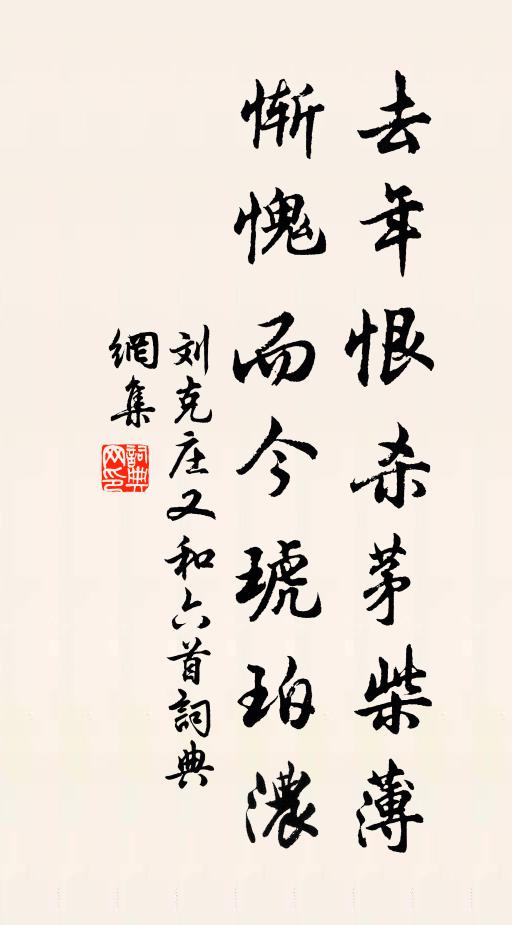 去年恨杀茅柴薄
惭愧而今琥珀濃
刘克庄又和六首詞典
網集
詞典网印